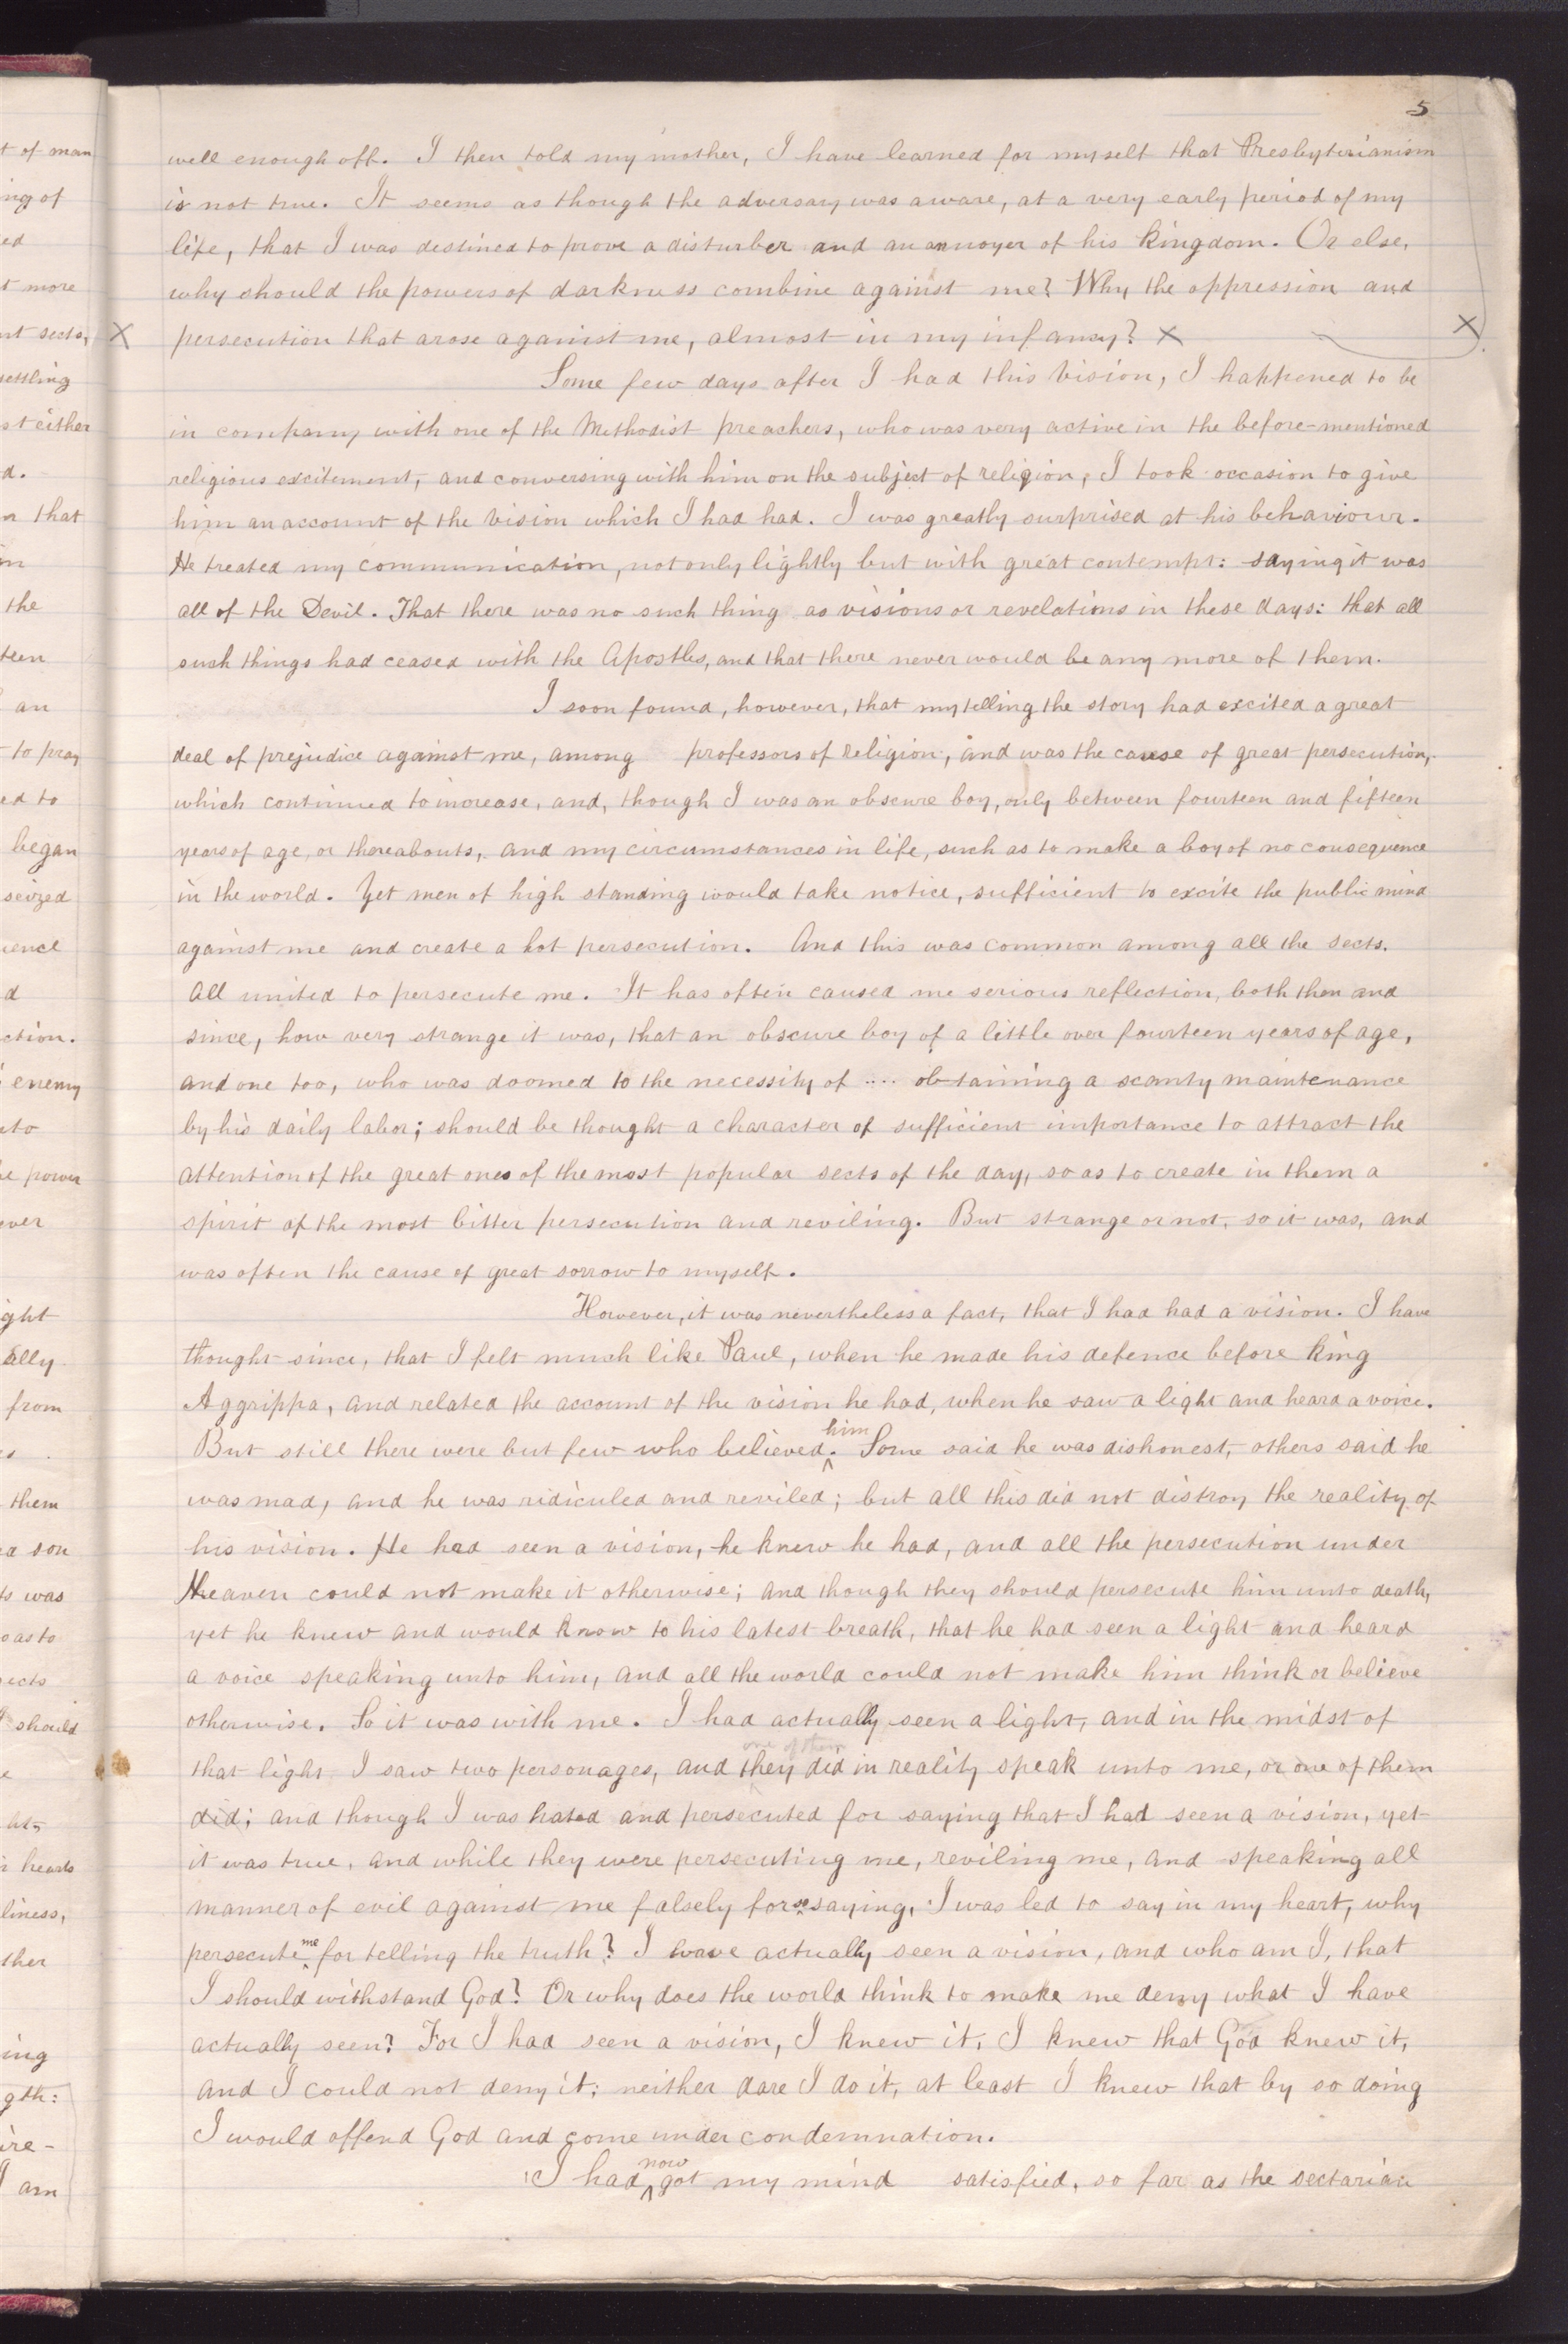 5
well enough off. I then told my mother, I have learned for myself that Presbyterianism
is not true. It seems as though the adversary was aware, at a very early period of my
life, that I was destined to prove a disturber and an annoyer of his kingdom. Or else,
why should the powers of darkness combine against me? Why the oppression and
X persecution that arose against me, almost in my infancy? X X
Some few days after I had this vision, I happened to be
in company with one of the Methodist preachers, who was very active in the before-mentioned
religious excitement, and conversing with him on the subject of religion, I took occasion to give
him an account of the vision which I had had. I was greatly surprised at his behaviour.
He treated my communication, not only lightly but with great contempt: saying it was
all of the Devil. That there was no such thing as visions or revelations in these days: that all
such things had ceased with the Apostles, and that there never would be any more of them.
I soon found, however, that my telling the story had excited a great
deal of prejudice against me, among professors of religion, and was the cause of great persecution,
which continued to increase, and, though I was an obscure boy, only between fourteen and fifteen
years of age, or thereabouts, and my circumstances in life, such as to make a boy of no consequence
in the world. Yet men of high standing would take notice, sufficient to excite the public mind
against me and create a hot persecution. And this was common among all the sects.
All united to persecute me. It has often caused me serious reflection, both then and
since, how very strange it was, that an obscure boy of a little over fourteen years of age,
and one too, who was doomed to the necessity of .... obtaining a scanty maintenance
by his daily labor; should be thought a character of sufficient importance to attract the
attention of the great ones of the most popular sects of the day, so as to create in them a
spirit of the most bitter persecution and reviling. But strange or not, so it was, and
was often the cause of great sorrow to myself.
However, it was nevertheless a fact, that I had had a vision. I have
thought since, that I felt much like Paul, when he made his defence before King
Aggrippa, and related the account of the vision he had, when he saw a light and heard a voice.
But still there were but few who believed him. Some said he was dishonest, others said he
was mad, and he was ridiculed and reviled; but all this did not distroy the reality of
his vision. He had seen a vision, he knew he had, and all the persecution under
Heaven could not make it otherwise; and though they should persecute him unto death,
yet he knew and would know to his latest breath, that he had seen a light and heard
a voice speaking unto him, and all the world could not make him think or believe
otherwise. So it was with me. I had actually seen a light, and in the midst of
one of them
that light I saw two personages, and they did in reality speak unto me, or one of them
did; and though I was hated and persecuted for saying that I had seen a vision, yet
it was true, and while they were persecuting me, reviling me, and speaking all
manner of evil against me falsely for so saying, I was led to say in my heart, why
persecute me for telling the truth? I have actually seen a vision, and who am I, that
I should withstand God? Or why does the world think to make me deny what I have
actually seen? For I had seen a vision, I knew it, I knew that God knew it,
and I could not deny it; neither dare I do it, at least I knew that by so doing
I would offend God and come under condemnation.
I had now got my mind satisfied, so far as the sectarian